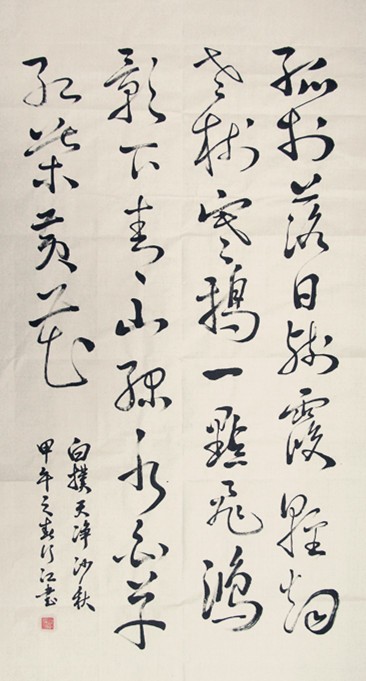 孤村落日残霞輕烟
老樹寒鴉一點飛鴻
影下青山绿水白草
红葉黄花
白樸天净沙秋
甲午之春行江書